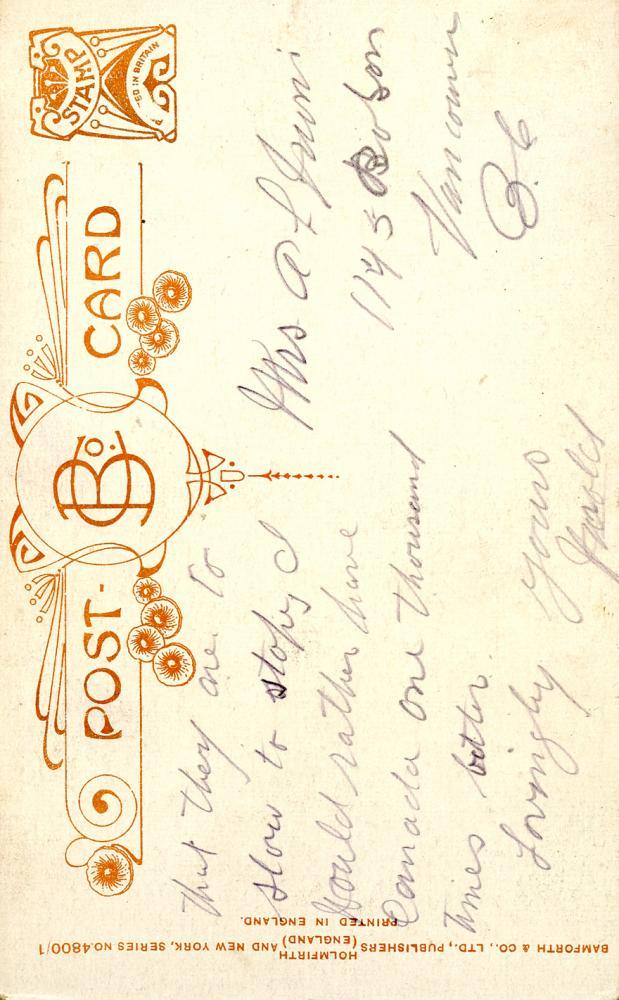 POST- CARD
B Co.
STAMP
P ED IN BRITAIN
that they are to
slow to stop, I
Would rather have
Canada one thousand
times better.
Lovingly Yours
Harold
Mrs A L Irwin
1145 Robson
Vancouver
B.C
BAMFORTH & CO., LTD., PUBLISHERS (HOLMFIRTH (ENGLAND) AND NEW YORK, SERIES NO.4800/1
PRINTED IN ENGLAND.